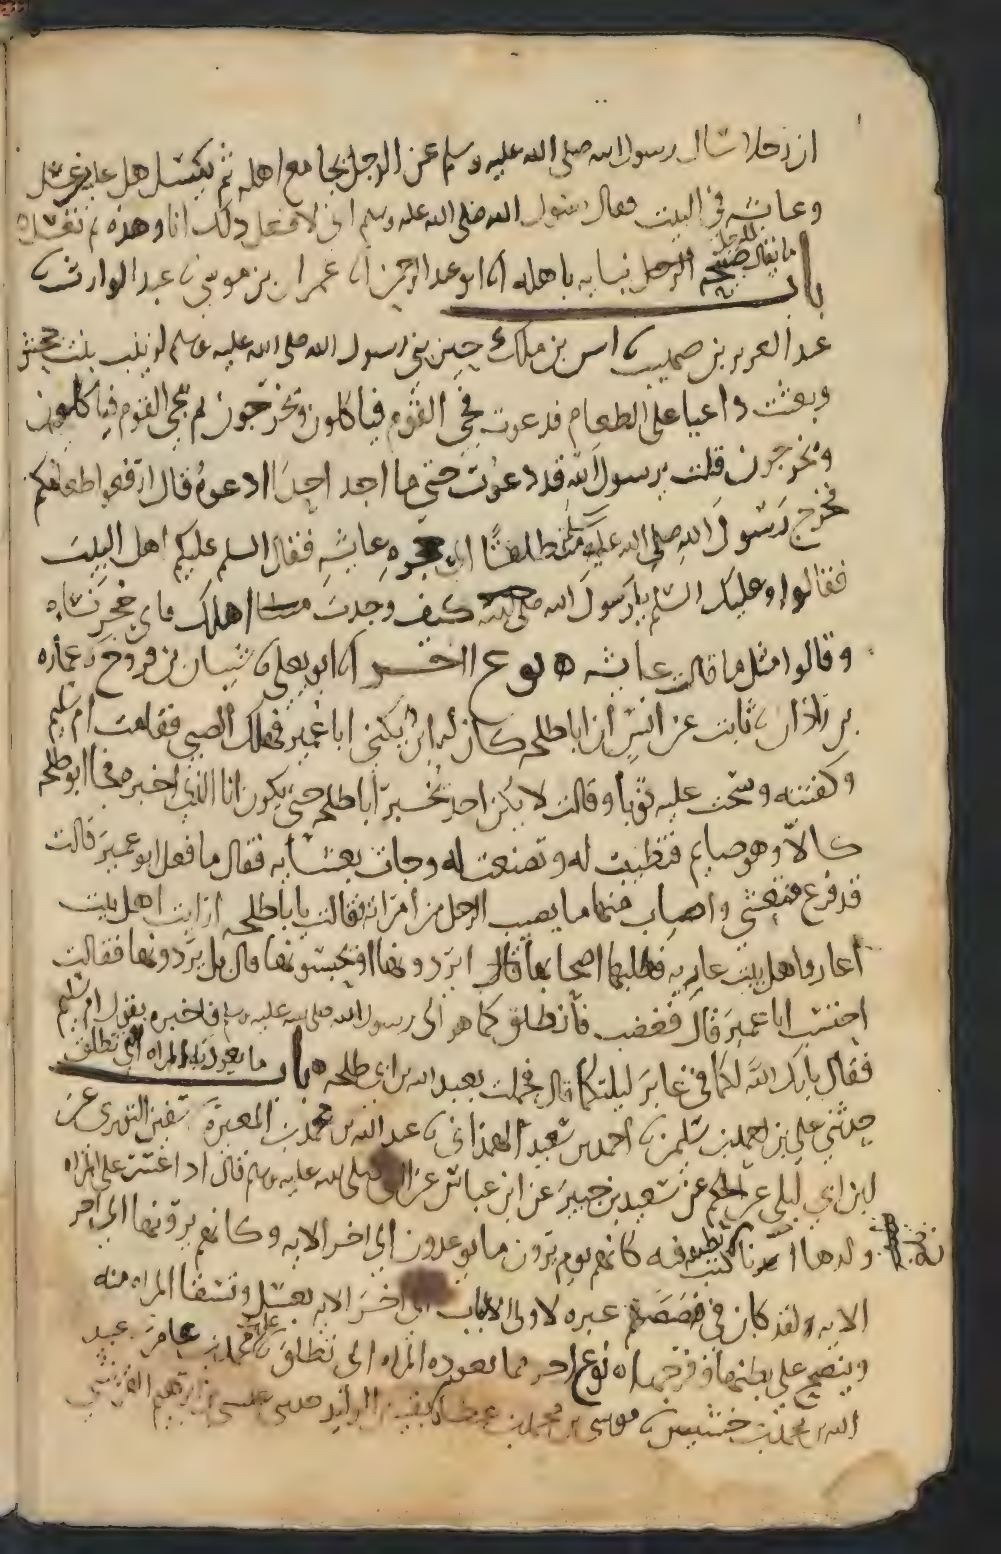 ان رجلا سال رسول الله صلى الله عليه وسلم عن الرجل يجامع اهله ثم يكسل هل عليه غسل
وعائشه في البيت فقال رسول الله صلى الله عليه وسلم اني لافعل ذلك انا وهذه ثم نغتسل
باب ما يقال للرجل صبيحه الرجل يبنا به باهله ابو عبد الرحمن عمران بن موسى عبد الوارث
عبد العزيز بن صهيب انس بن ملك حين بنى رسول الله صلى الله عليه وسلم لزينب بنت جحش
وبعثت داعيا على الطعام فدعوت فيجي القوم فياكلون ويخرجون ثم يجي القوم فياكلون
ويخرجون قلت يرسول الله قد دعوت حتى ما اجد احدا ادعوه قال ارفعوا طعامكم
فخرج رسول الله صلى الله عليه وسلم منطلقا الى حجره عايشه فقال السلم عليكم اهل البيت
فقالوا وعليك السلم يا رسول الله صلى الله كيف وجدت اهلك فاتى حجر نساه
وقالوا مثل ما قالت عايشه ه نوع اخر ابو يعلى شيبان بن فروخ عماره
بن زاذان ثابت عن انس ان ابا طلحه كان له ابن يكنى ابا عمير فهلك الصبي فقامت ام سليم
وكفنته وسجت عليه ثوبا وقالت لا يكن احد يخبر ابا طلحه حتى يكون انا الذي اخبره فجا ابو طلحه
كالا وهو صايم فتطيبت له وتصنعت له وجات بعشايه فقال ما فعل ابو عمير قالت
قد فرغ فتعشى واصاب منها ما يصيب الرجل من امراته فقالت يا با طلحه ارايت اهل بيت
اعاروا اهل بيت عاريه فطلبها اصحابها قال ايردونها او يحبسونها قال بل يردونها فقالت
احتسب ابا عمير قال فغضب فانطلق كما هو الى رسول الله صلى الله عليه وسلم فاخبره بقول ام سليم
فقال بارك الله لكما في غابر ليلتكما قال فحملت بعبد الله بن ابي طلحه ه باب ما يعوذ به المراه التي تطلق
حدثني علي بن احمد بن سليمن احمد بن سعيد الهمذاني عبد الله بن محمد بن المغيره سفين الثوري عن
ابن ابي ليلى عن الحكم عن سعيد بن جبير عن ابن عباس عن النبي صلى الله عليه وسلم قال اذا عسر على المراه
ولدها فيه كانهم يوم يرون ما يوعدون الى اخر الايه وكانهم يوم يرونها الى اخر
الايه ولقد كان في قصصهم عبره لاولى الالباب الى اخر الايه يغسل وتسقا المراه منه
وينضح على بطنها وفرجها ه نوع اخر مما يعوذ به المراه التي تطلق علي بن محمد بن عامر عبد
الله بن محمد بن خشيش موسى بن محمد بن عطا بقيه بن الوليد حدثني عيسى بن ابرهيم القرشي